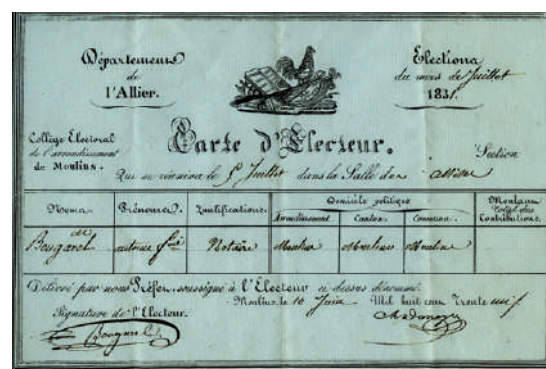 Département
de
l'Allier.
Elections
du mois de Juillet
1831.
Collège Electoral
de l'arrondissement
de Moulins.
Carte d'Electeur.
Section
Qui se réunira le 5 Juillet dans la Salle des
Noms. Prénoms. Qualifications. Domicile politique Montant
Total des
Arrondissement Canton. Commune. Contributions.
Bougarel antoine Notaire Moulins Moulins Moulins
Délivré par nous Préfet soussigné à l'Electeur ci dessus dénommé.
Moulins le 10 Juin Mil huit cent Trente
Signature de l'Electeur.
Bougarel